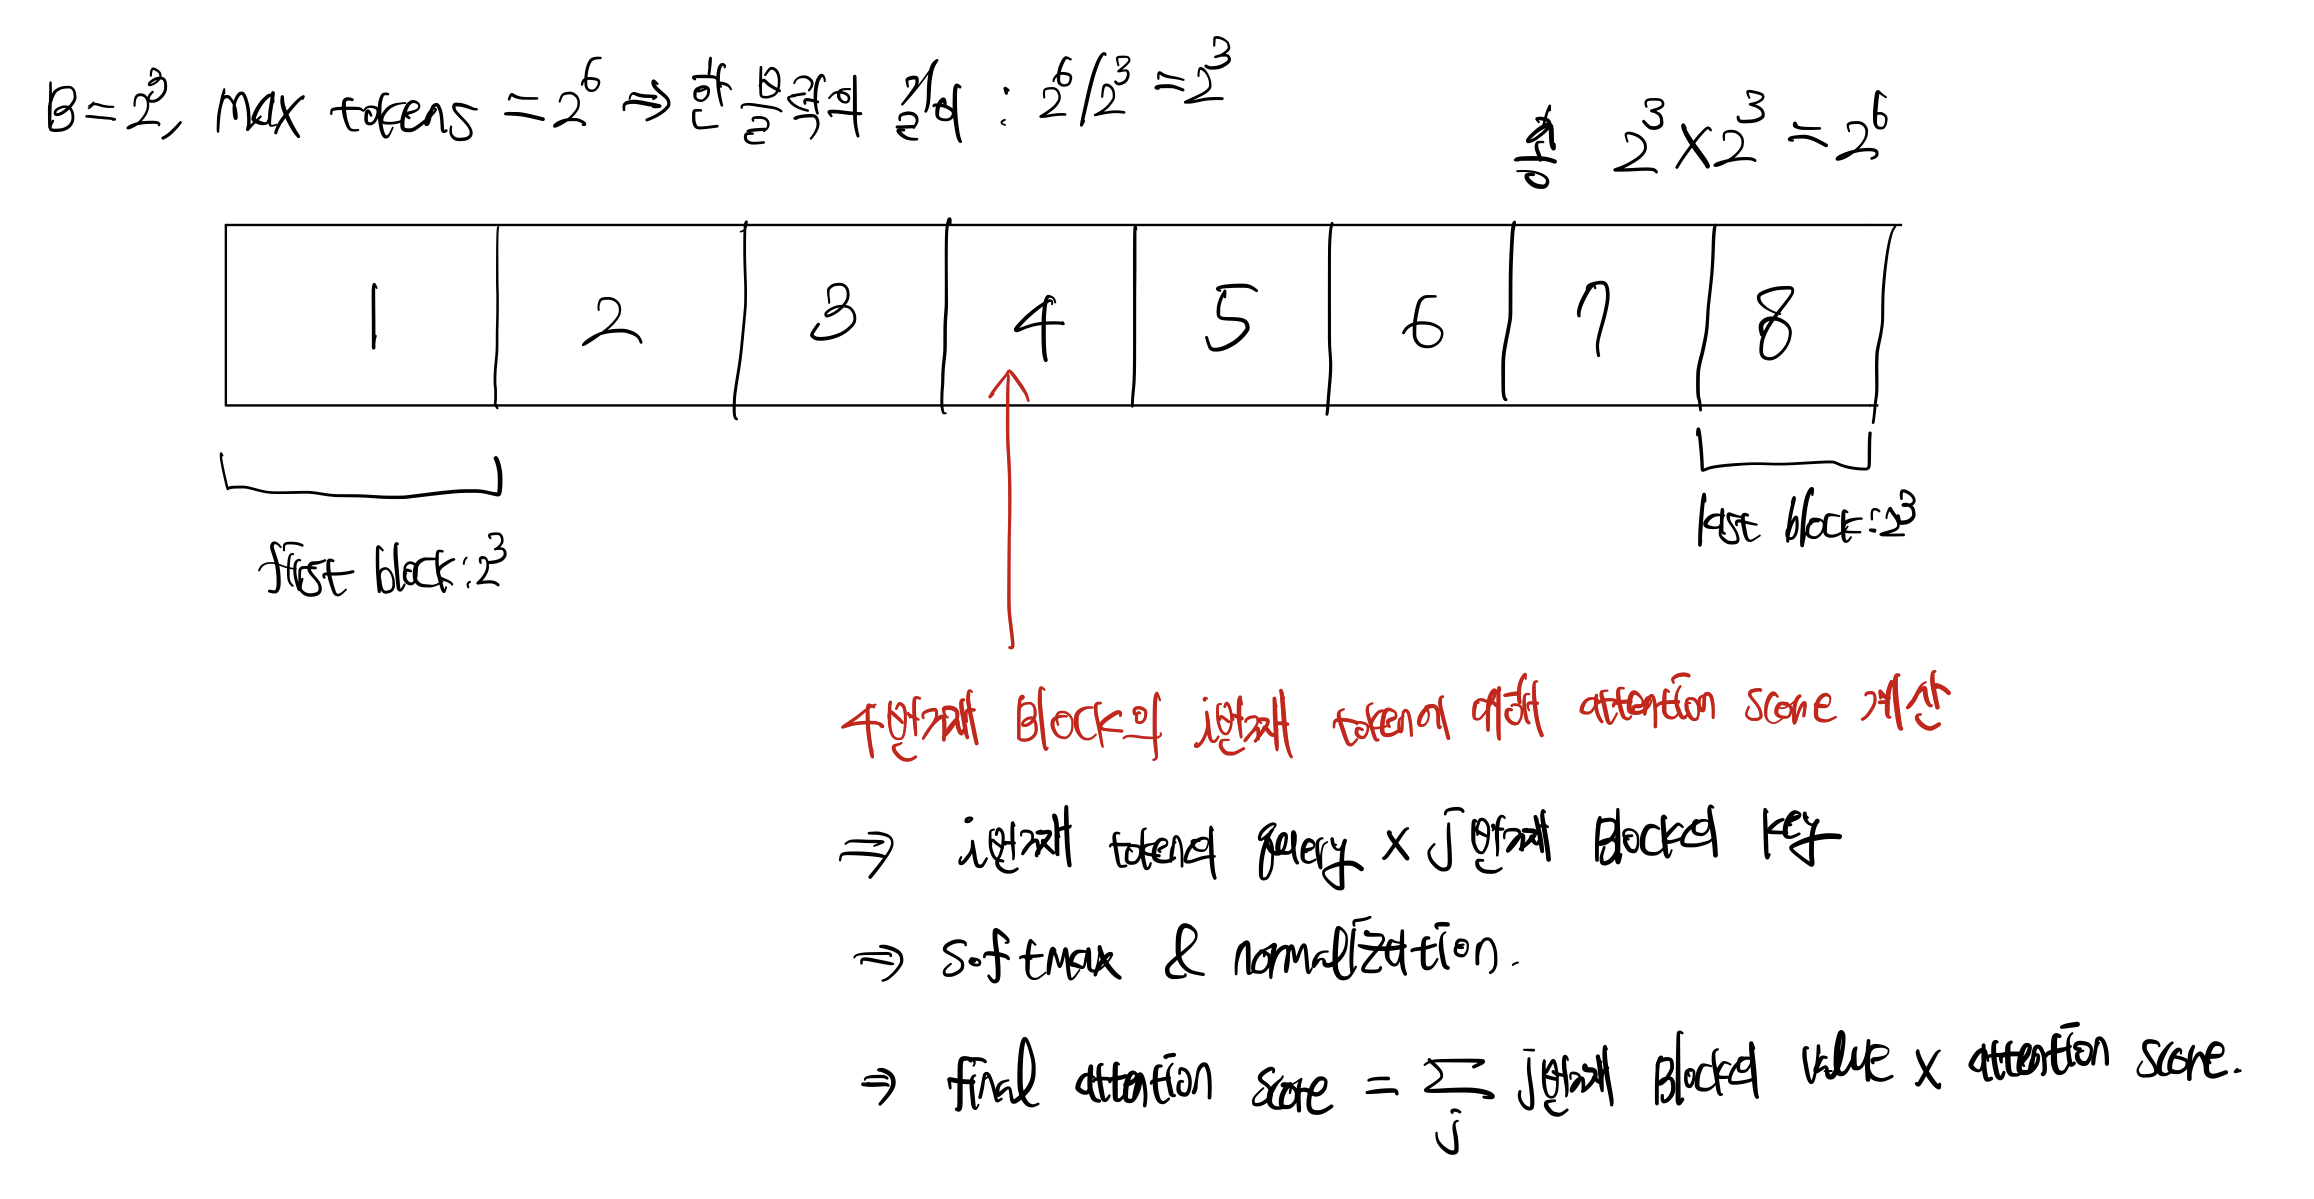 B=2³, max tokens = 2⁶ ⇒ 한 블럭의 길이 : 2⁶/2³ = 2³
총 2³×2³=2⁶
1 2 3 4 5 6 7 8
first block:2³
last block:2³
4번째 Block의 i번째 token에 대한 attention score 계산
⇒ i번째 token의 query × j번째 Block의 key
⇒ softmax & normalization.
⇒ final attention score = ∑j j번째 Block의 value × attention score.